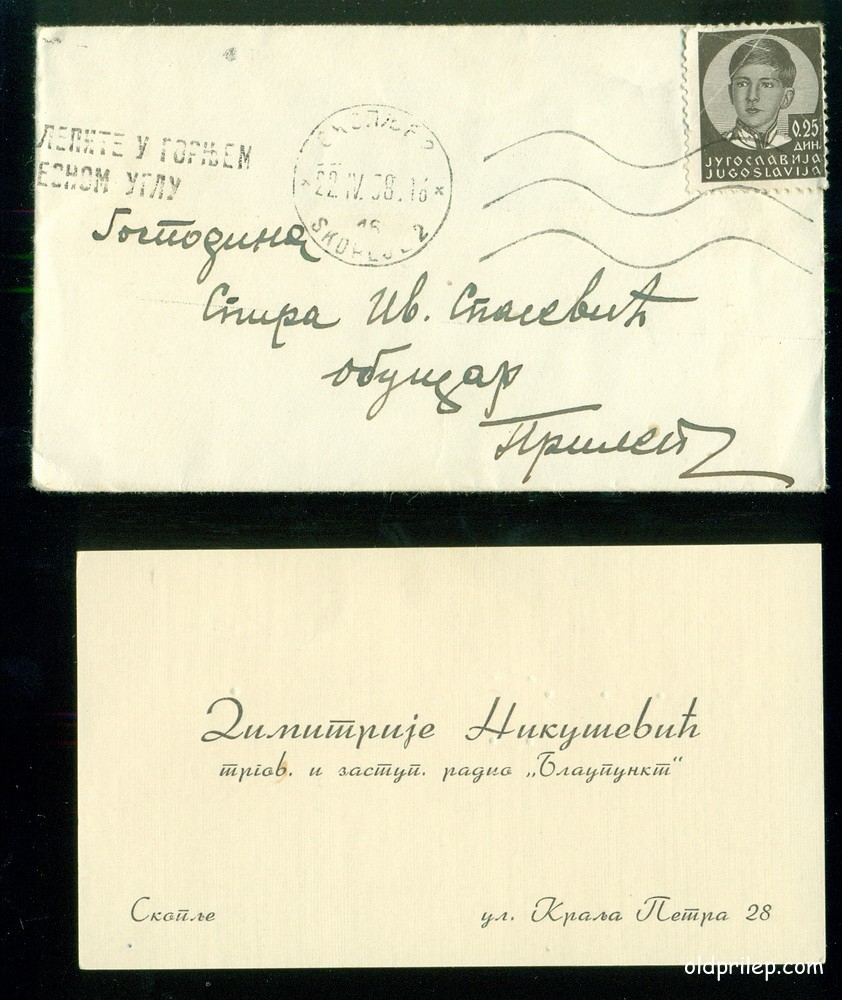 ЛЕПИТЕ У ГОРЊЕМ
ДЕСНОМ УГЛУ
СКОПЉЕ 2
22.IV.38.16
16
SKOPLJE 2
0.25
ДИН.
ЈУГОСЛАВИЈА
JUGOSLAVIJA
Господина
Спира Ив. Спасевић
обућар
Прилеп
Димитрије Никушевић
тргов. и заступ. радио „Блаупункт“
Скопље
ул. Краља Петра 28
oldprilep.com